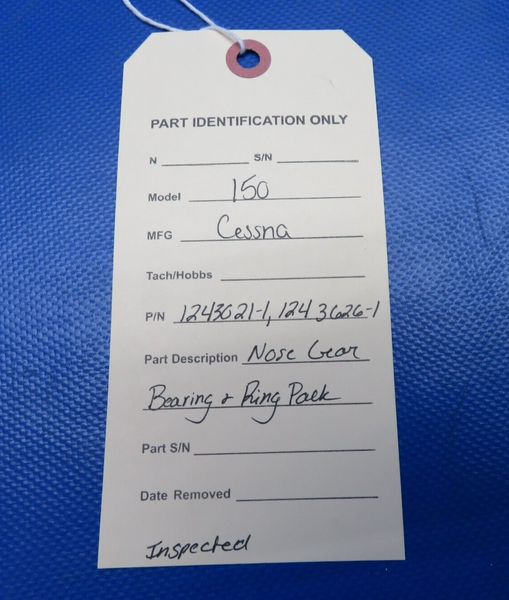 PART IDENTIFICATION ONLY
N S/N
Model 150
MFG Cessna
Tach/Hobbs
P/N 1243021-1, 1243626-1
Part Description Nose Gear
Bearing & Ring Pack
Part S/N
Date Removed
Inspected